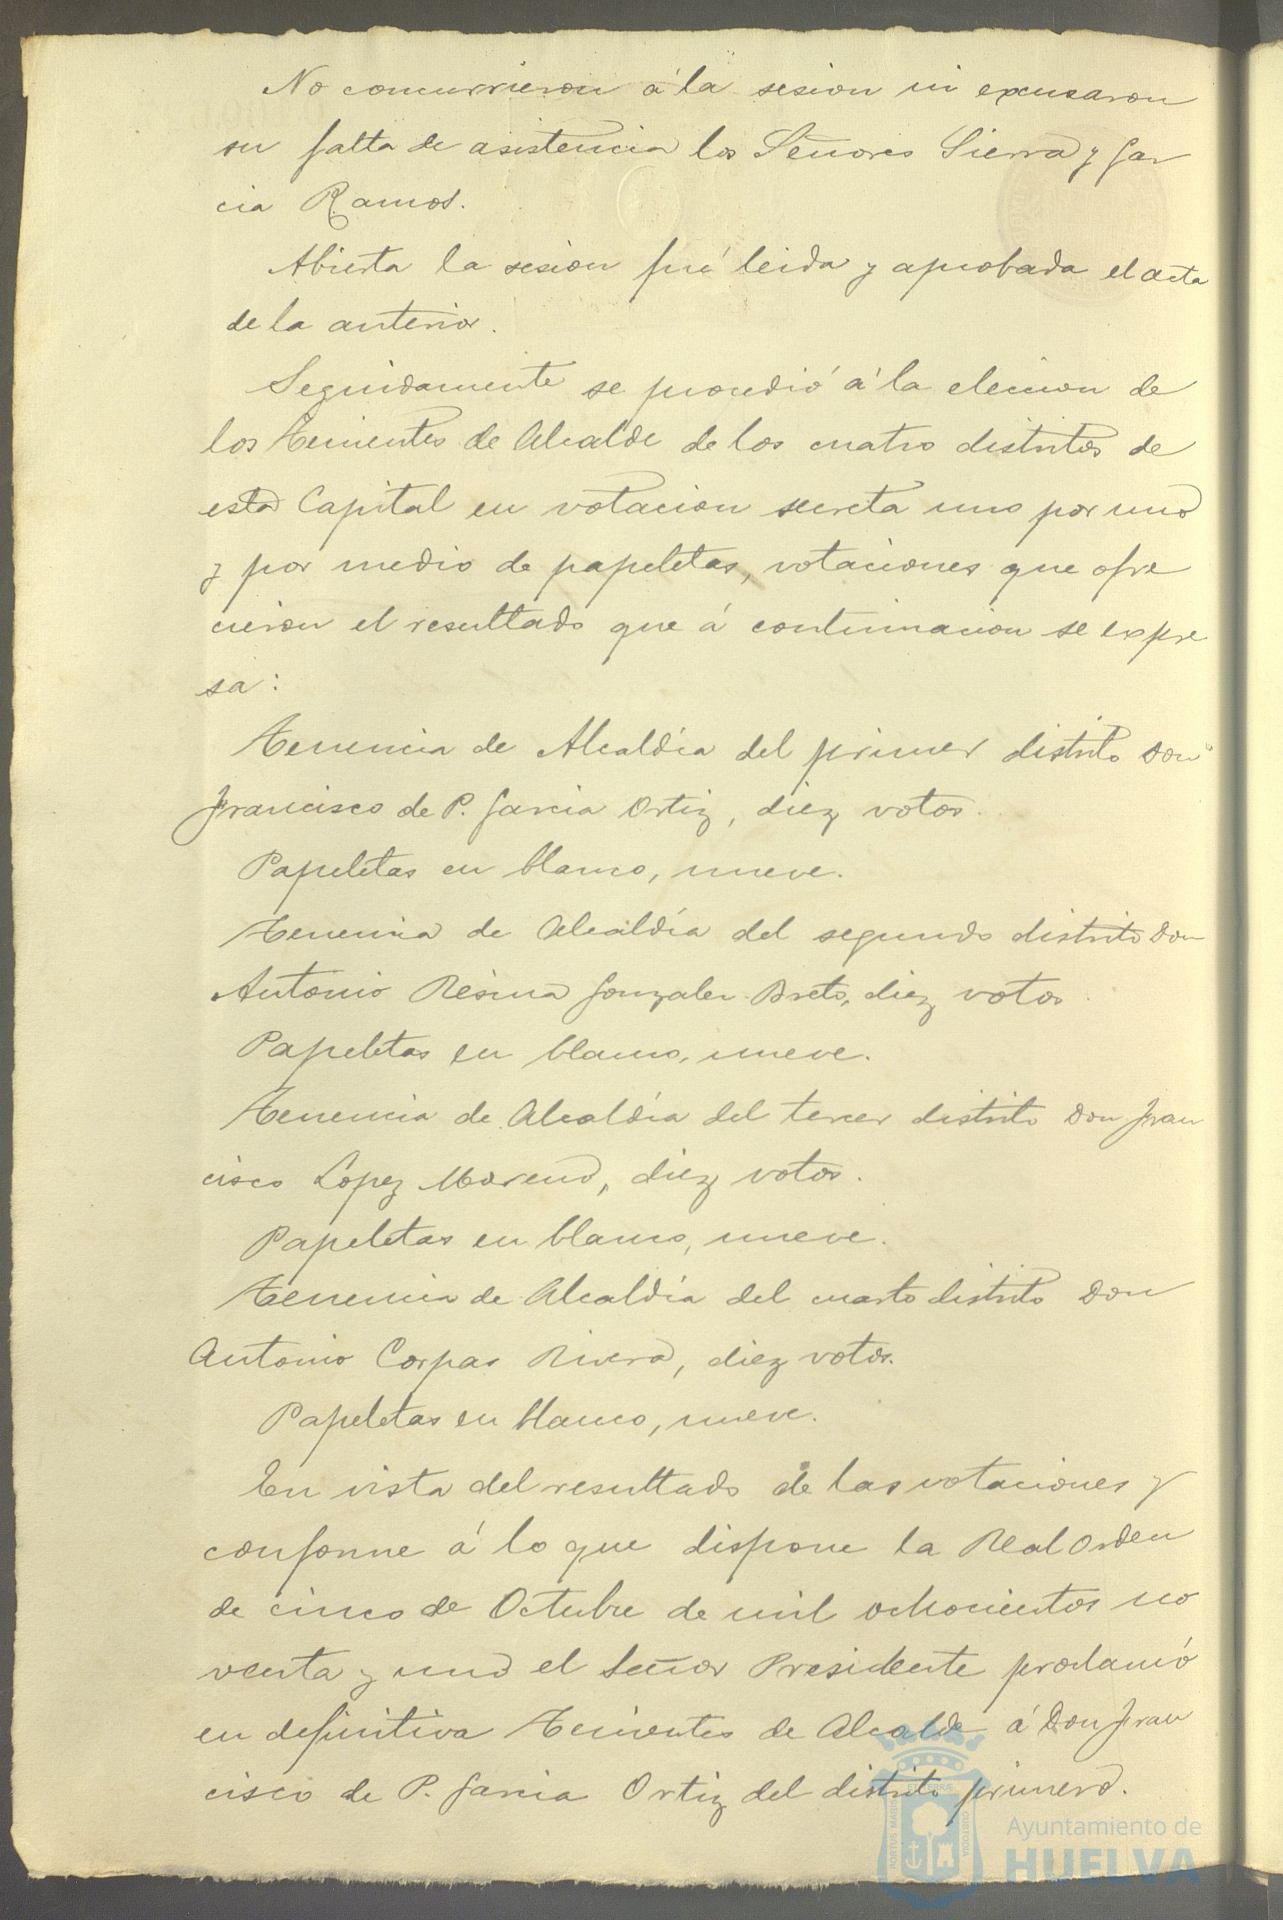 No concurrieron á la sesion ni excusaron
su falta de asistencia los Señores Sierra y Gar
cia Ramos.
Abierta la sesion fué leida y aprobada el acta
de la anterior.
Seguidamente se procedió á la eleccion de
los Tenientes de Alcalde de los cuatro distritos de
esta Capital en votacion secreta uno por uno
y por medio de papeletas, votaciones que ofre
cieron el resultado que á continuacion se expre
sa:
Tenencia de Alcaldía del primer distrito Don
Francisco de P. Garcia Ortiz, diez votos.
Papeletas en blanco, nueve.
Tenencia de Alcaldía del segundo distrito Don
Antonio Résina Gonzalez, diez votos
Papeletas en blanco, nueve.
Tenencia de Alcaldía del tercer distrito Don Fran
cisco Lopez Moreno, diez votos.
Papeletas en blanco, nueve.
Tenencia de Alcaldía del cuarto distrito Don
Antonio Corpas Rivera, diez votos.
Papeletas en blanco, nueve.
En vista del resultado de las votaciones y
conforme á lo que dispone la Real Orden
de cinco de Octubre de mil ochocientos no
venta y uno el Señor Presidente proclamó
en definitiva Tenientes de Alcalde á Don Fran
cisco de P. Garcia Ortiz del distrito primero.
Ayuntamiento de
HUELVA